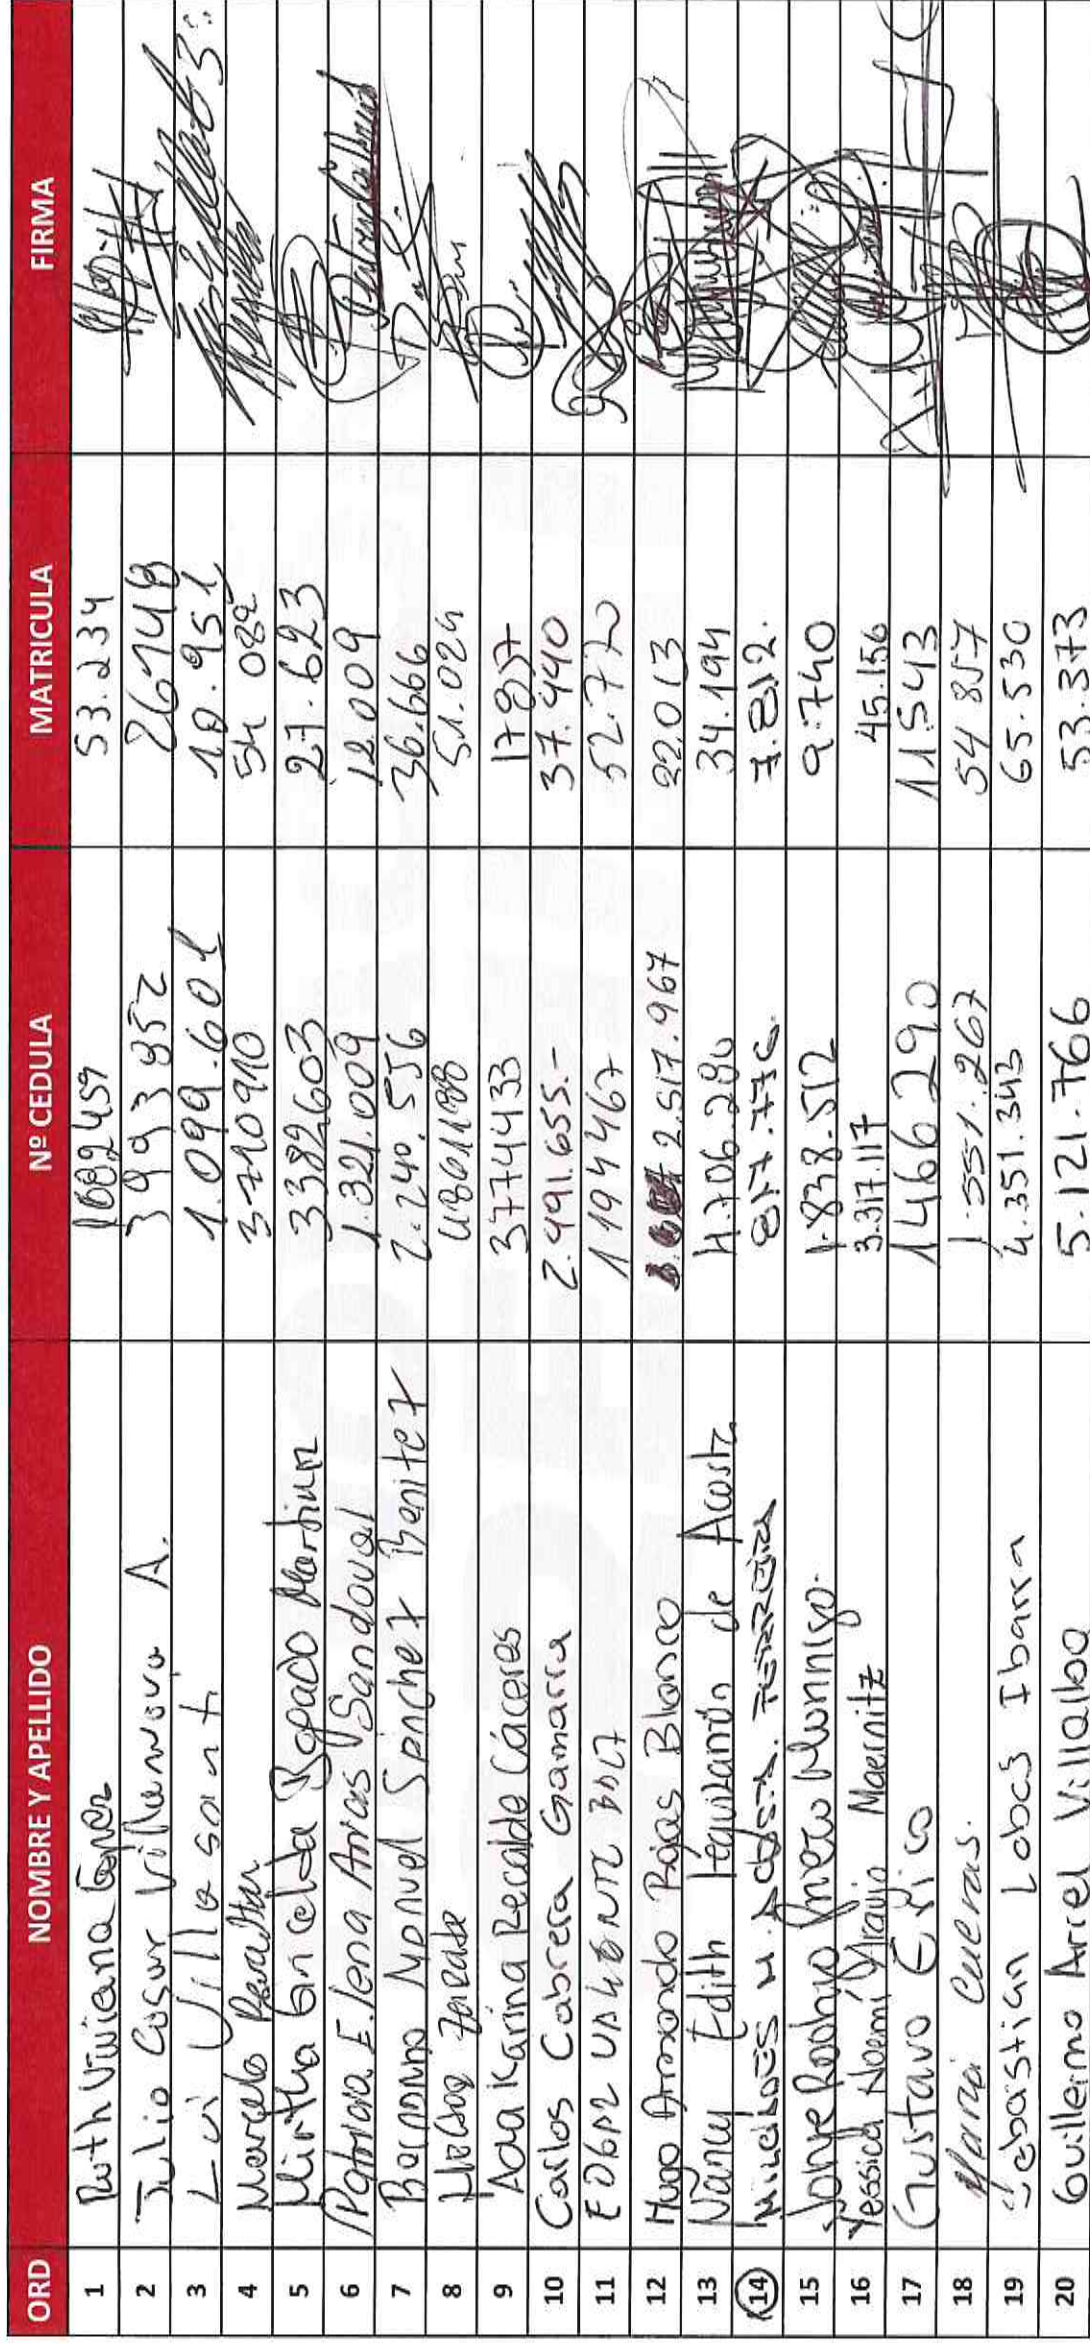 ORD NOMBRE Y APELLIDO Nº CEDULA MATRICULA FIRMA
1 Ruth Viviana 1682459 53.234
2 Julio Cesar Villanueva A. 3993852 26748
3 Luis Villasanti 1.099.601 10.951
4 Marcelo Peralta 3710910 54 082
5 Mirtha Gricelda Bogado Martinez 3382603 27.623
6 Patricia Elena Arias Sandoval 1.321.009 12.009
7 Bernardo Manuel Sánchez Benitez 2.240.556 36.666
8 Zarate 4861188 51.024
9 Ada Karina Recalde Cáceres 3774433 17837
10 Carlos Cabrera Gamarra 2.491.655.- 37.440
11 EDGAR 1194467 52.770
12 Hugo Armando Rojas Blanco 2.517.967 22.013
13 Nancy Edith Leguizamón de Acosta 4.706.280 34.194
14 MILCIADES M. ACOSTA 817.776. 7.812.
15 Jorge Rodrigo 1.838.512 9.740
16 Yessica Noemí Araujo Maernitz 3.317.117 45.156
17 Gustavo 1466290 11543
18 María Cuevas. 1.551.267 54 857
19 Sebastian Lobos Ibarra 4.351.343 65.530
20 Guillermo Ariel Villalba 5.121.766 53.373